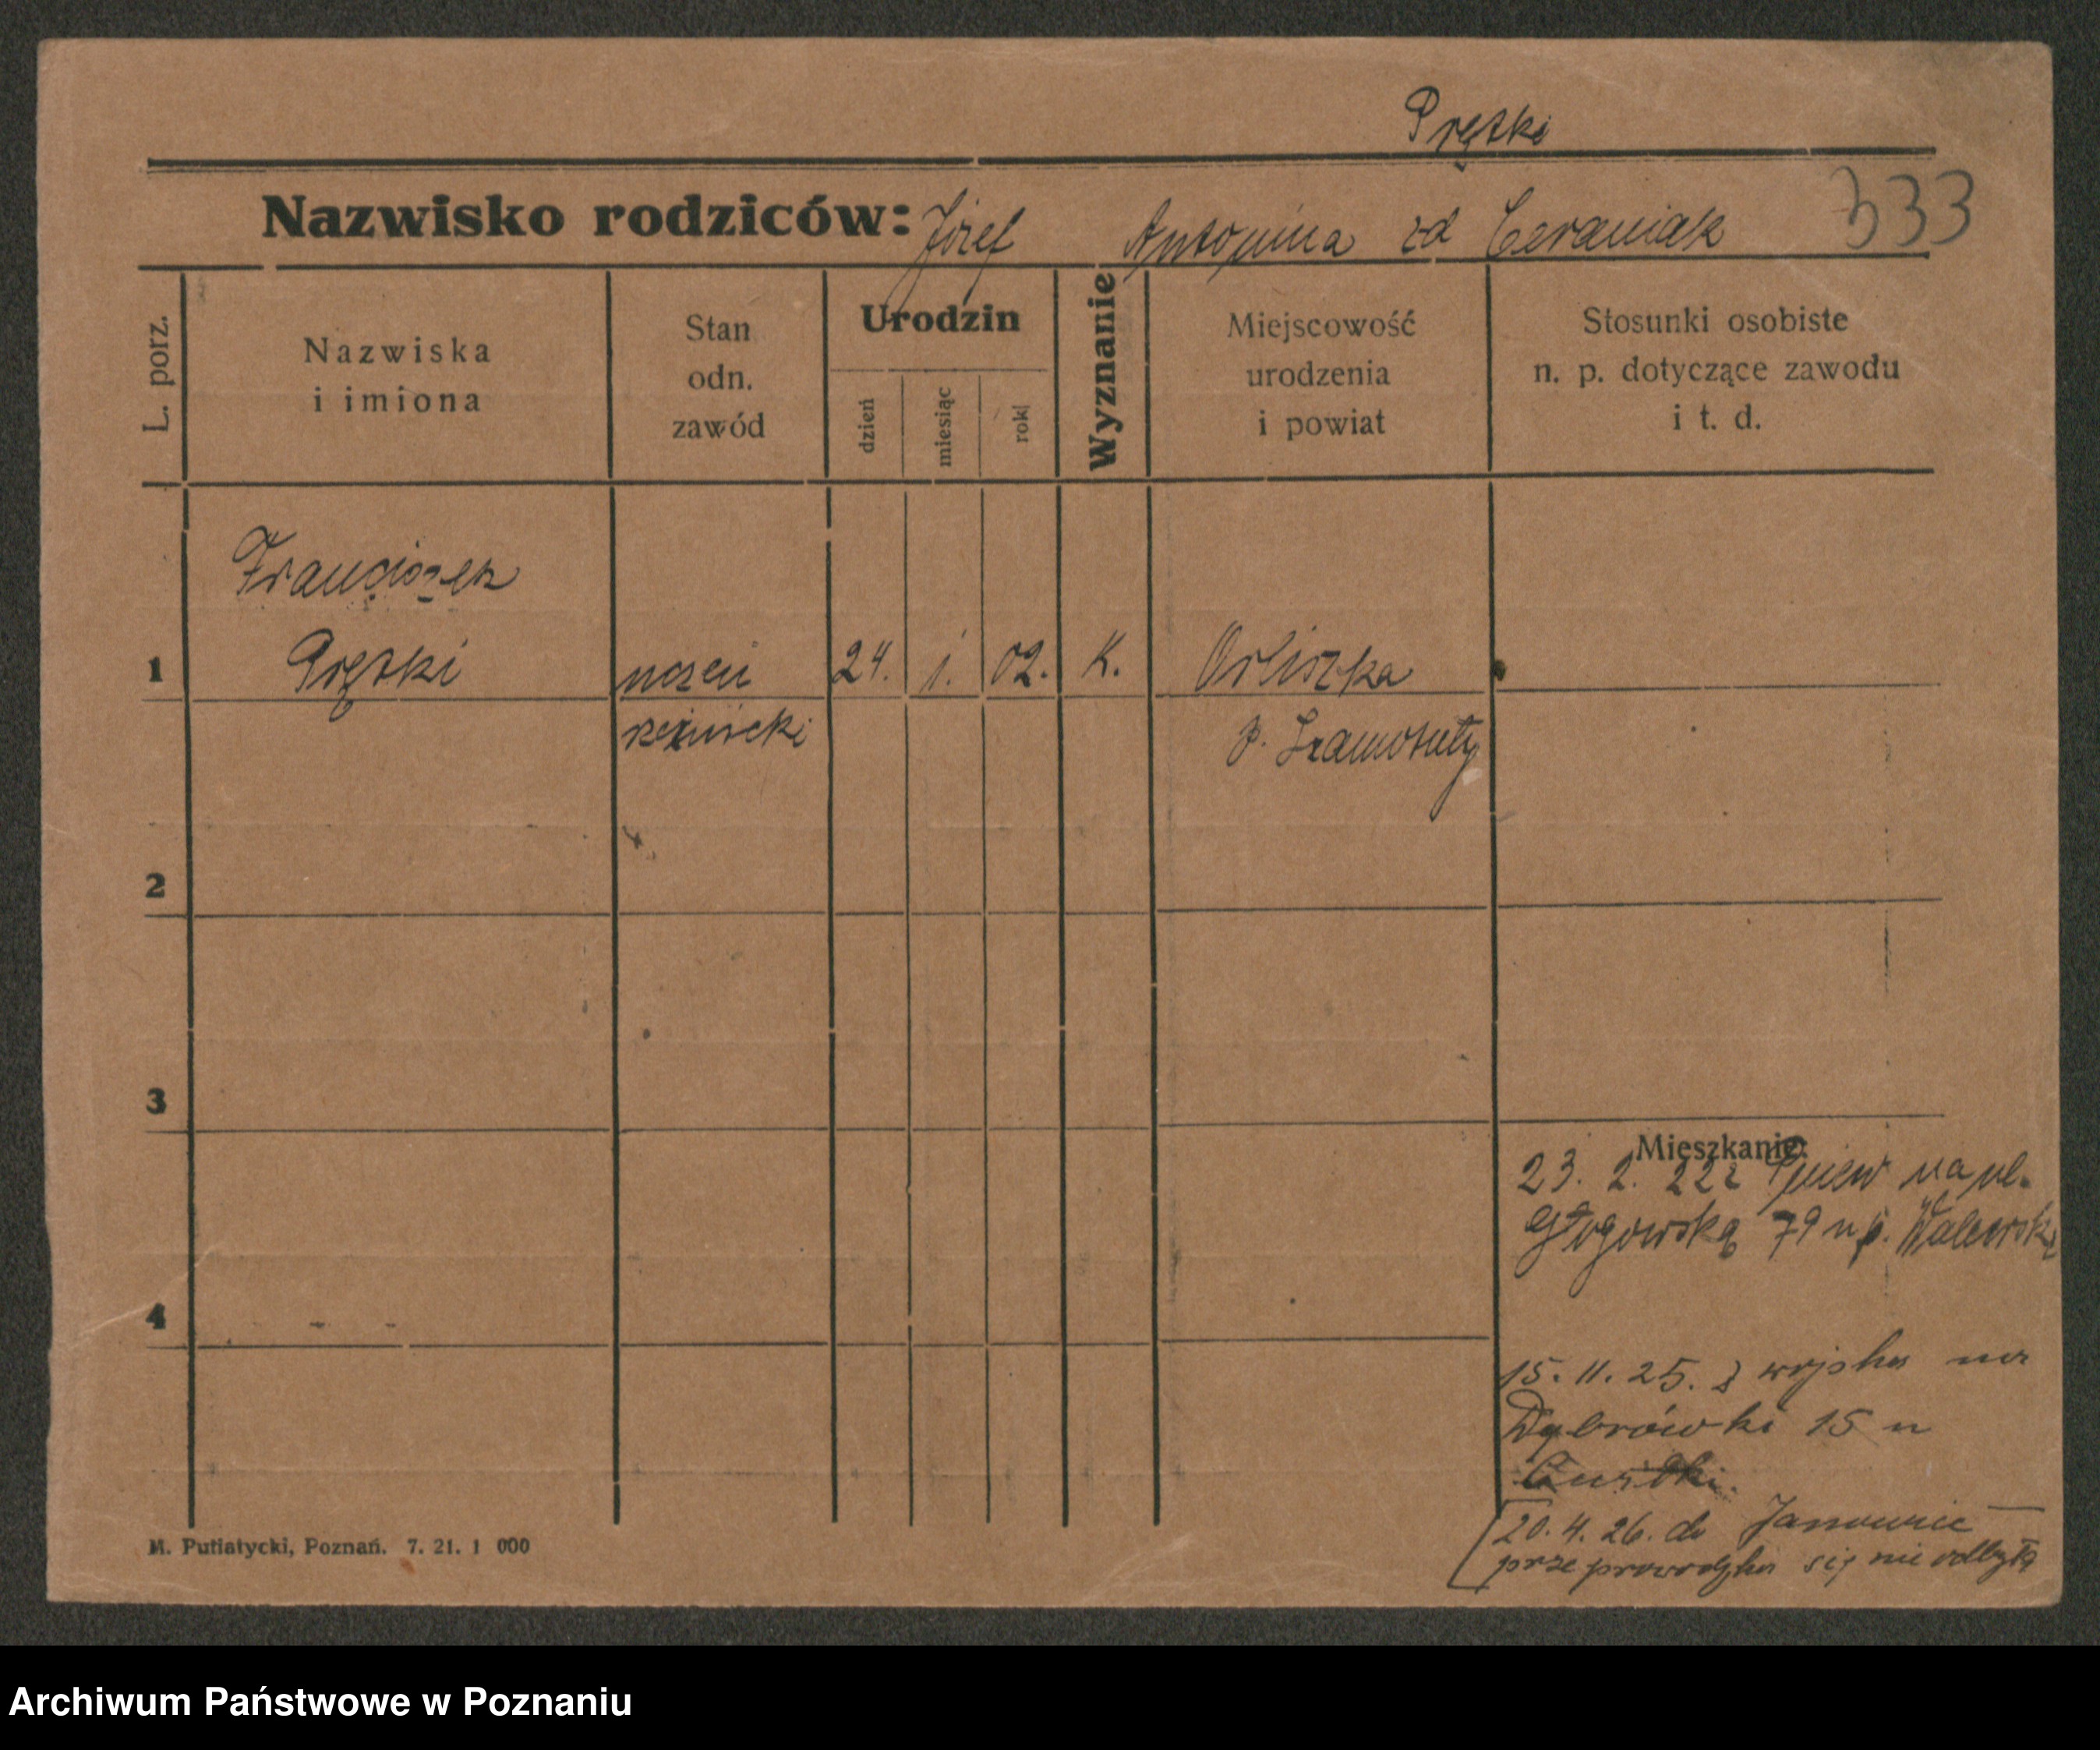 Prętki
Nazwisko rodziców: Józef Antonina zd Ceraniak 333
L. porz.
Nazwiska
i imiona
Stan
odn.
zawód
Urodzin
dzień
miesiąc
rok
Wyznanie
Miejscowość
urodzenia
i powiat
Stosunki osobiste
n. p. dotyczące zawodu
i t. d.
Franciszek
1 Prętki uczeń 24. 1. 02. K. Orliszka
rzeźnicki p. Szamotuły
2
3
Mieszkanie:
23. 2. 22 z Gniew na ul.
Głogowską 79 u p.
4
15. 11. 25. z wojska na
Dąbrówki 15 u
20. 4. 26. do Janowiec
przeprowadzka się nie odbyła
M. Putiatycki, Poznań. 7. 21. 1 000
Archiwum Państwowe w Poznaniu